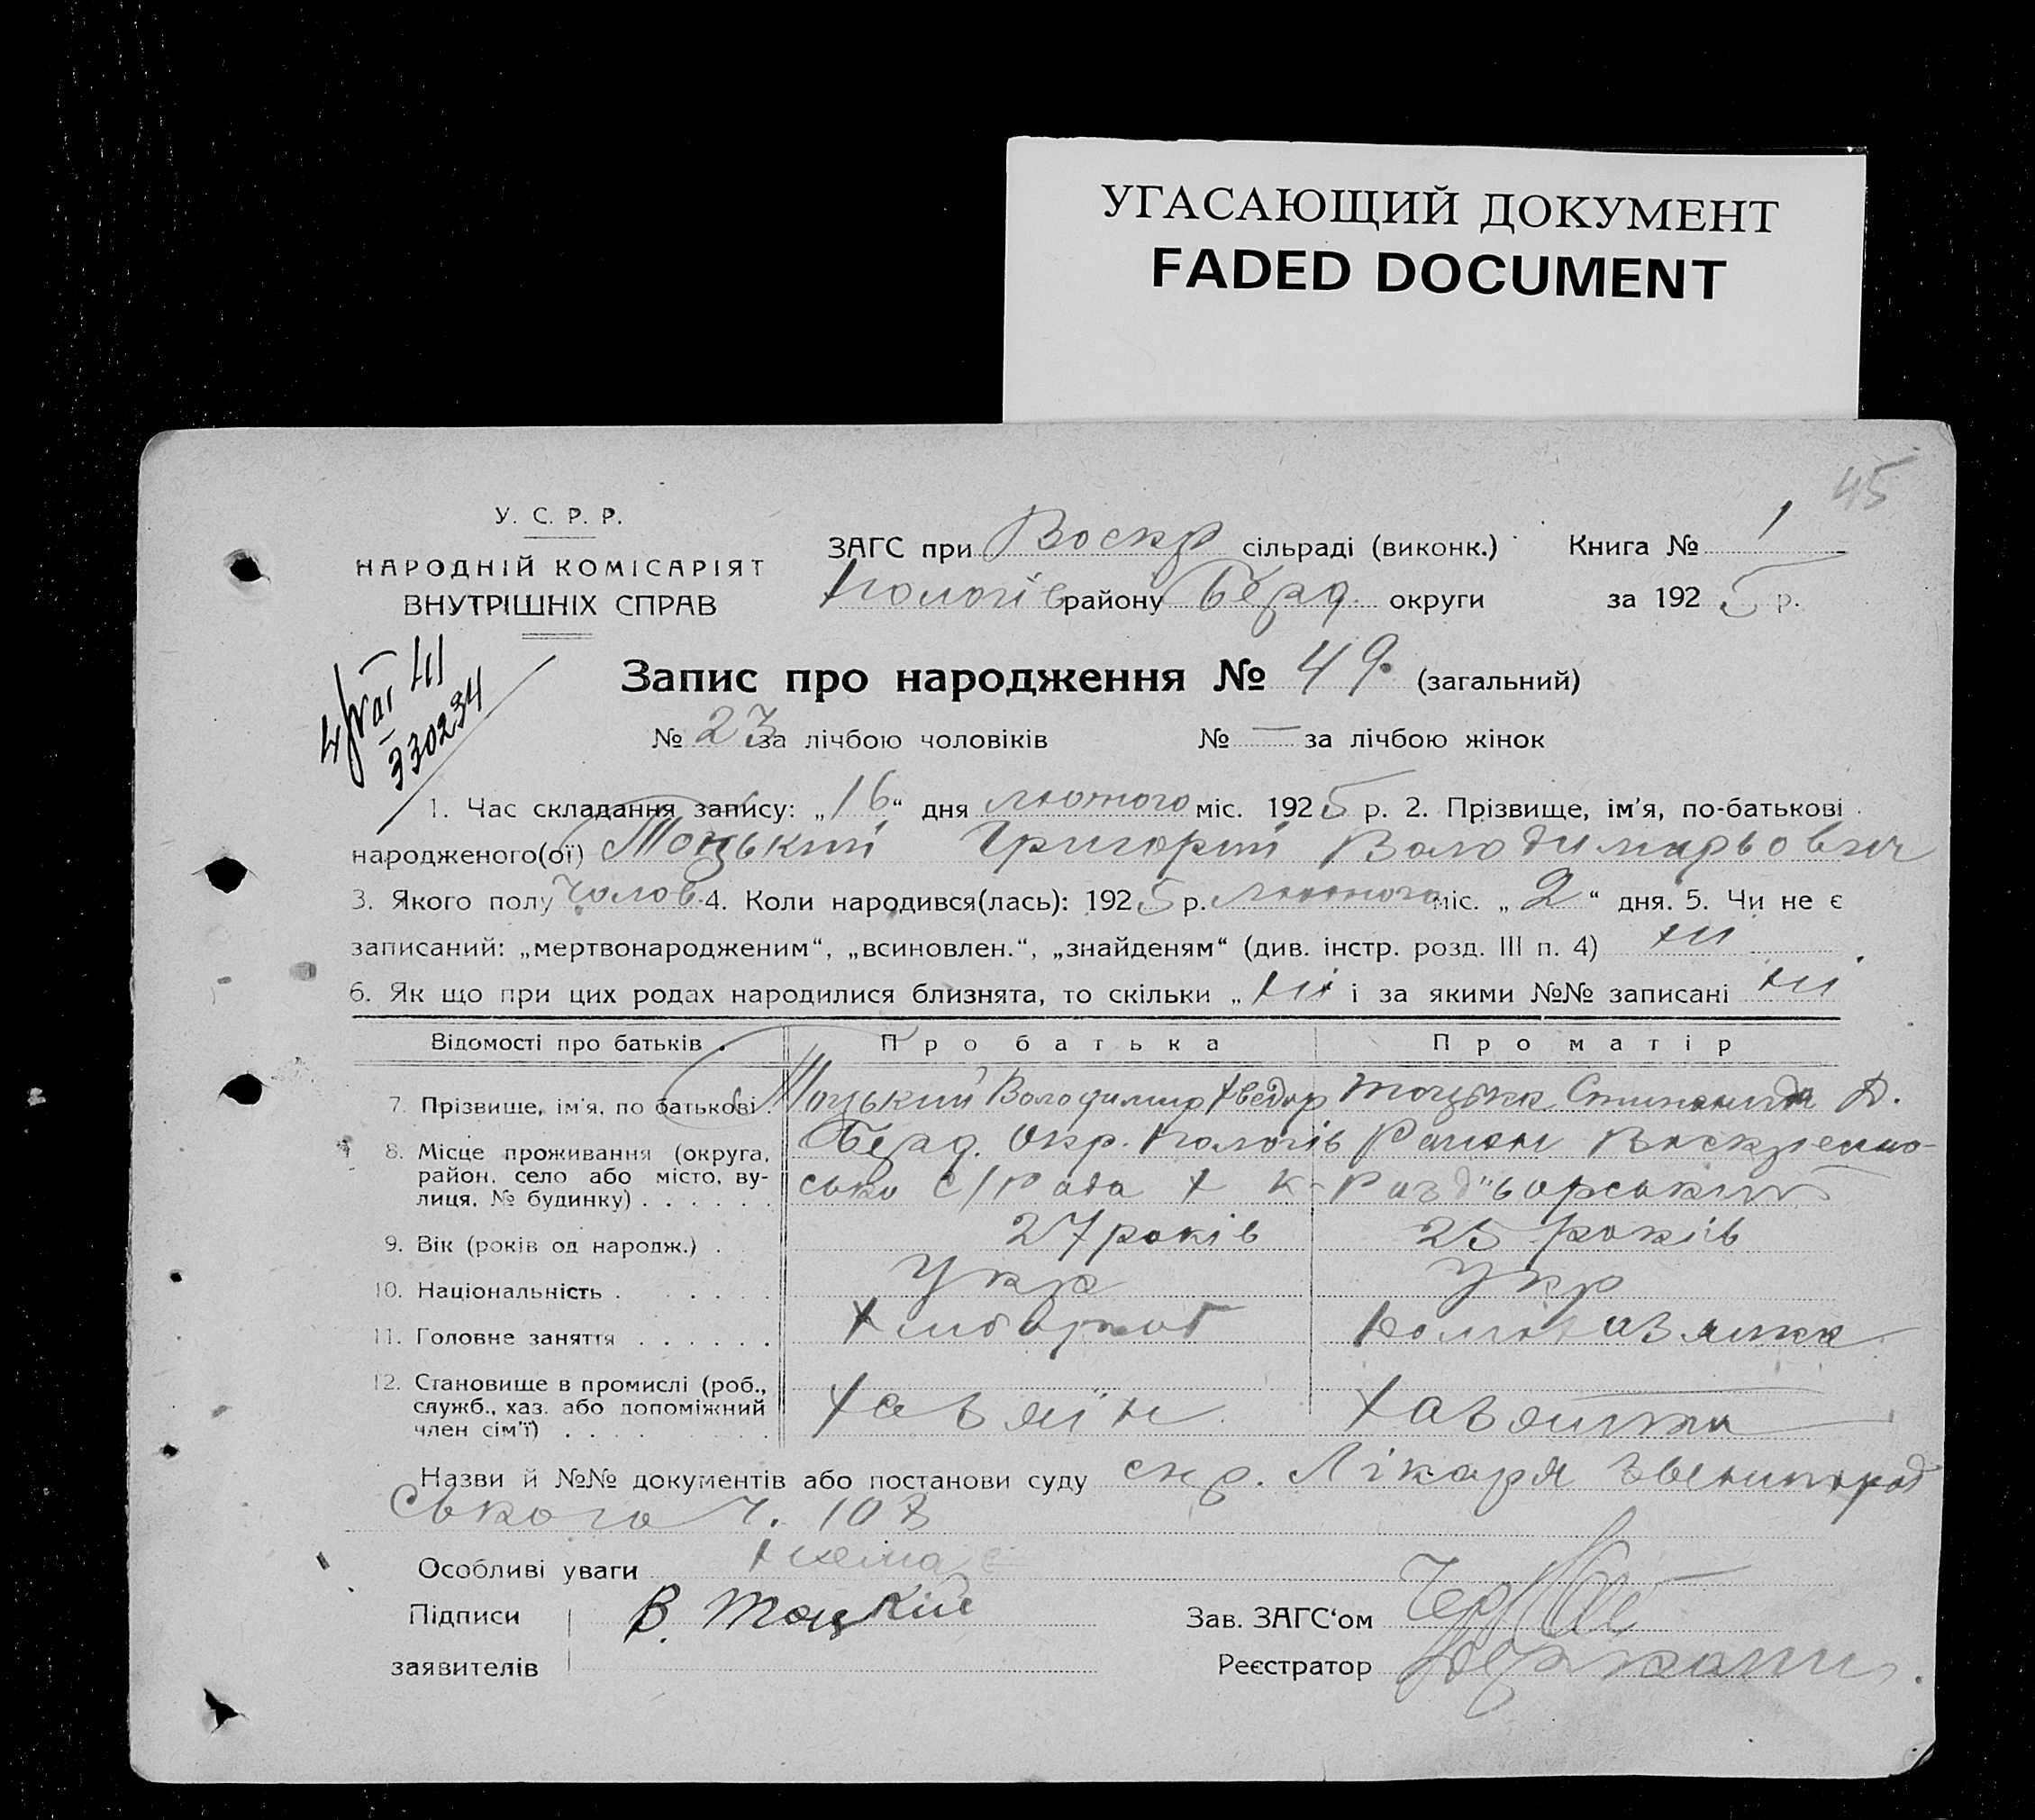 УГАСАЮЩИЙ ДОКУМЕНТ
FADED DOCUMENT
45
У. С. Р. Р.
НАРОДНІЙ КОМІСАРІЯТ
ВНУТРІШНІХ СПРАВ
ЗАГС при Воскр сільраді (виконк.) Книга № 1
Пологів району Берд. округи за 1925 р.
III
330234
Запис про народження № 49. (загальний)
№ 23 за лічбою чоловіків № — за лічбою жінок
1. Час складання запису: „16“ дня лютого міс. 1925 р. 2. Прізвище, ім'я, по-батькові
народженого(ої) Тоцький Григорій Володимирьович
3. Якого полу Чолов. 4. Коли народився(лась): 1925 р. Лютого міс. „2“ дня. 5. Чи не є
записаний: „мертвонародженим“, „всиновлен.“, „знайденям“ (див. інстр. розд. III п. 4) ні
6. Як що при цих родах народилися близнята, то скільки „ ні і за якими №№ записані ні
Відомості про батьків. Про батька Про матір
7. Прізвище, ім'я, по батькові. Тоцький Володимир Хведор Тоцька Степанида Д.
8. Місце проживання (округа, Берд. Окр. Пологів Район Воскресено-
район, село або місто, ву-
лиця, № будинку) . . . . . . сько С/Рада
9. Вік (років од народж.) . 27 років 25 років
10. Національність . . . . . Укр Укр
11. Головне заняття . . . . . . Хлібороб
12. Становище в промислі (роб.,
служб., хаз. або допоміжний
член сім'ї) . . . . Хазяїн Хазяйка
Назви й №№ документів або постанови суду Лікаря Звенигород
ського Ч. 103
Особливі уваги Немає
Підписи В. Тоцкій Зав. ЗАГС‘ом
заявителів Реєстратор